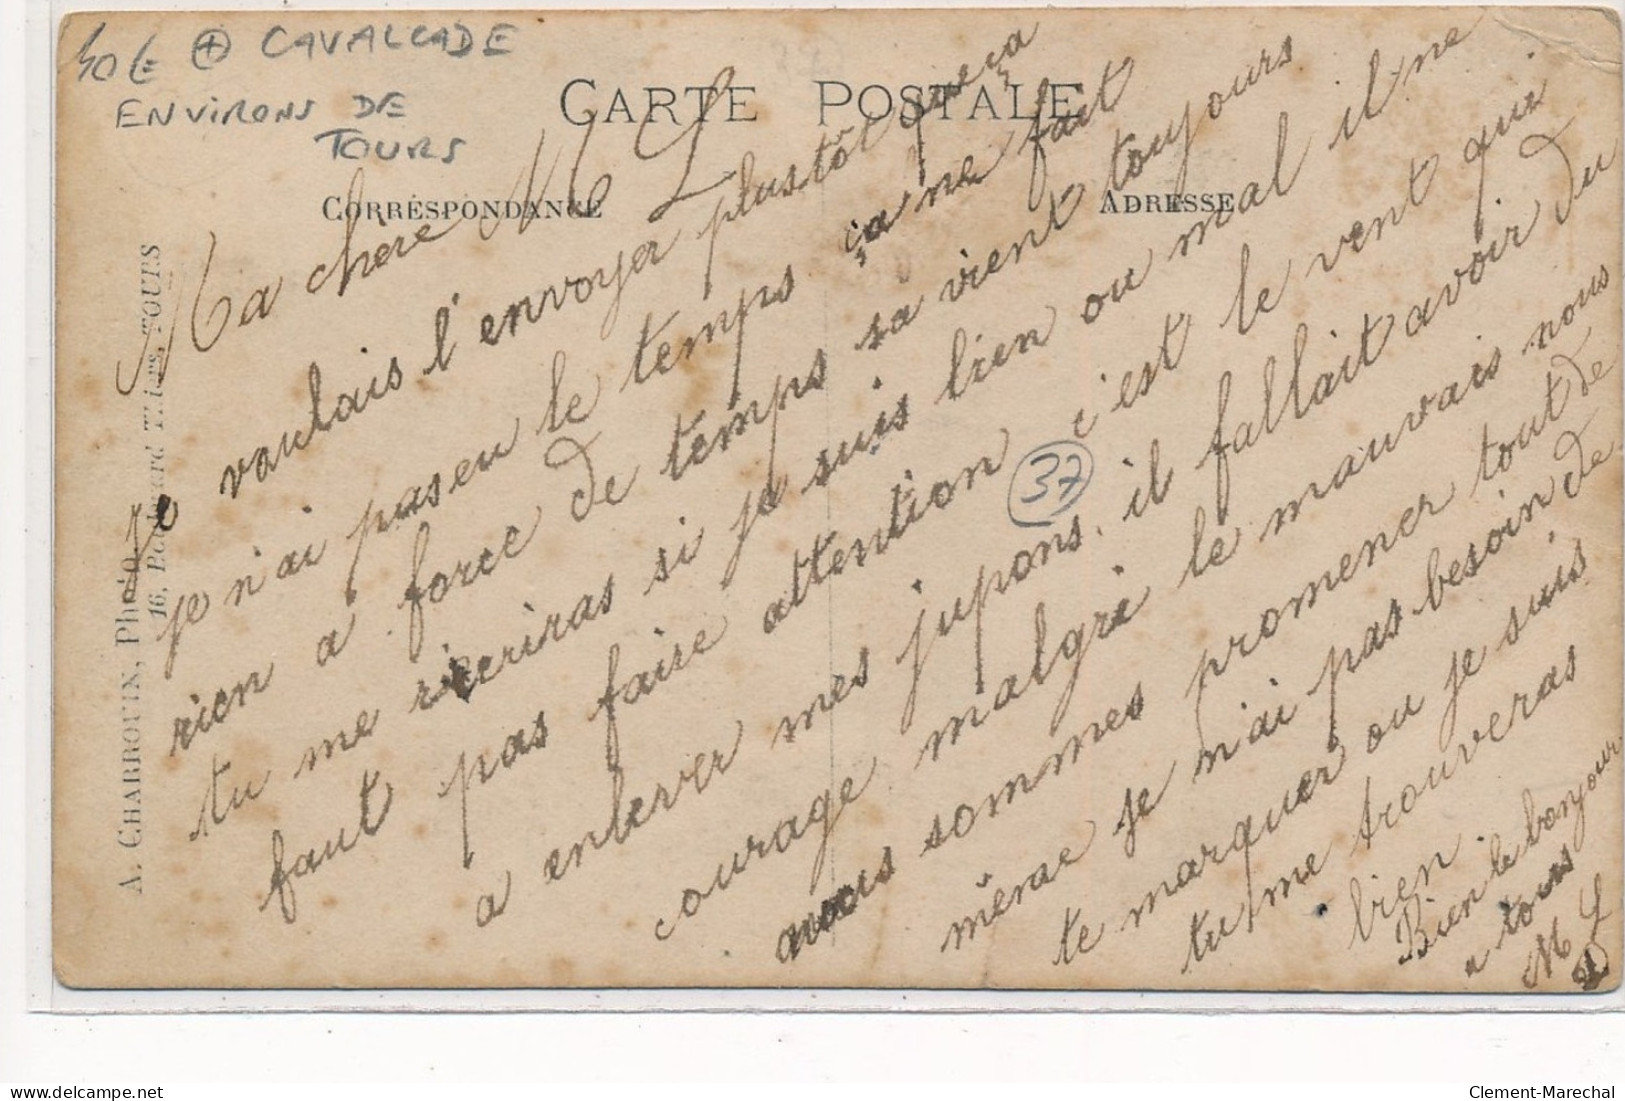 50 € + CAVALCADE
ENVIRONS DE
TOURS
CARTE POSTALE
CORRESPONDANCE
ADRESSE
A. CHARROUIN, Phot.
16, Boulevard Thiers, TOURS
37
Ma chere M L
Je voulais l'envoyer plustôt que ça
je n'ai pas eu le temps ça ne fait
rien a force de temps sa vient toujours
tu me riecriras si je suis bien ou mal il ne
faut pas faire attention c'est le vent qui
a enlever mes jupons. il fallait avoir du
courage malgre le mauvais nous
nous sommes promener tout de
même je n'ai pas besoin de
te marquer ou je suis
tu me trouveras
bien.
Bien le bonjour
a tous
M L
D
delcampe.net
Clement-Marechal